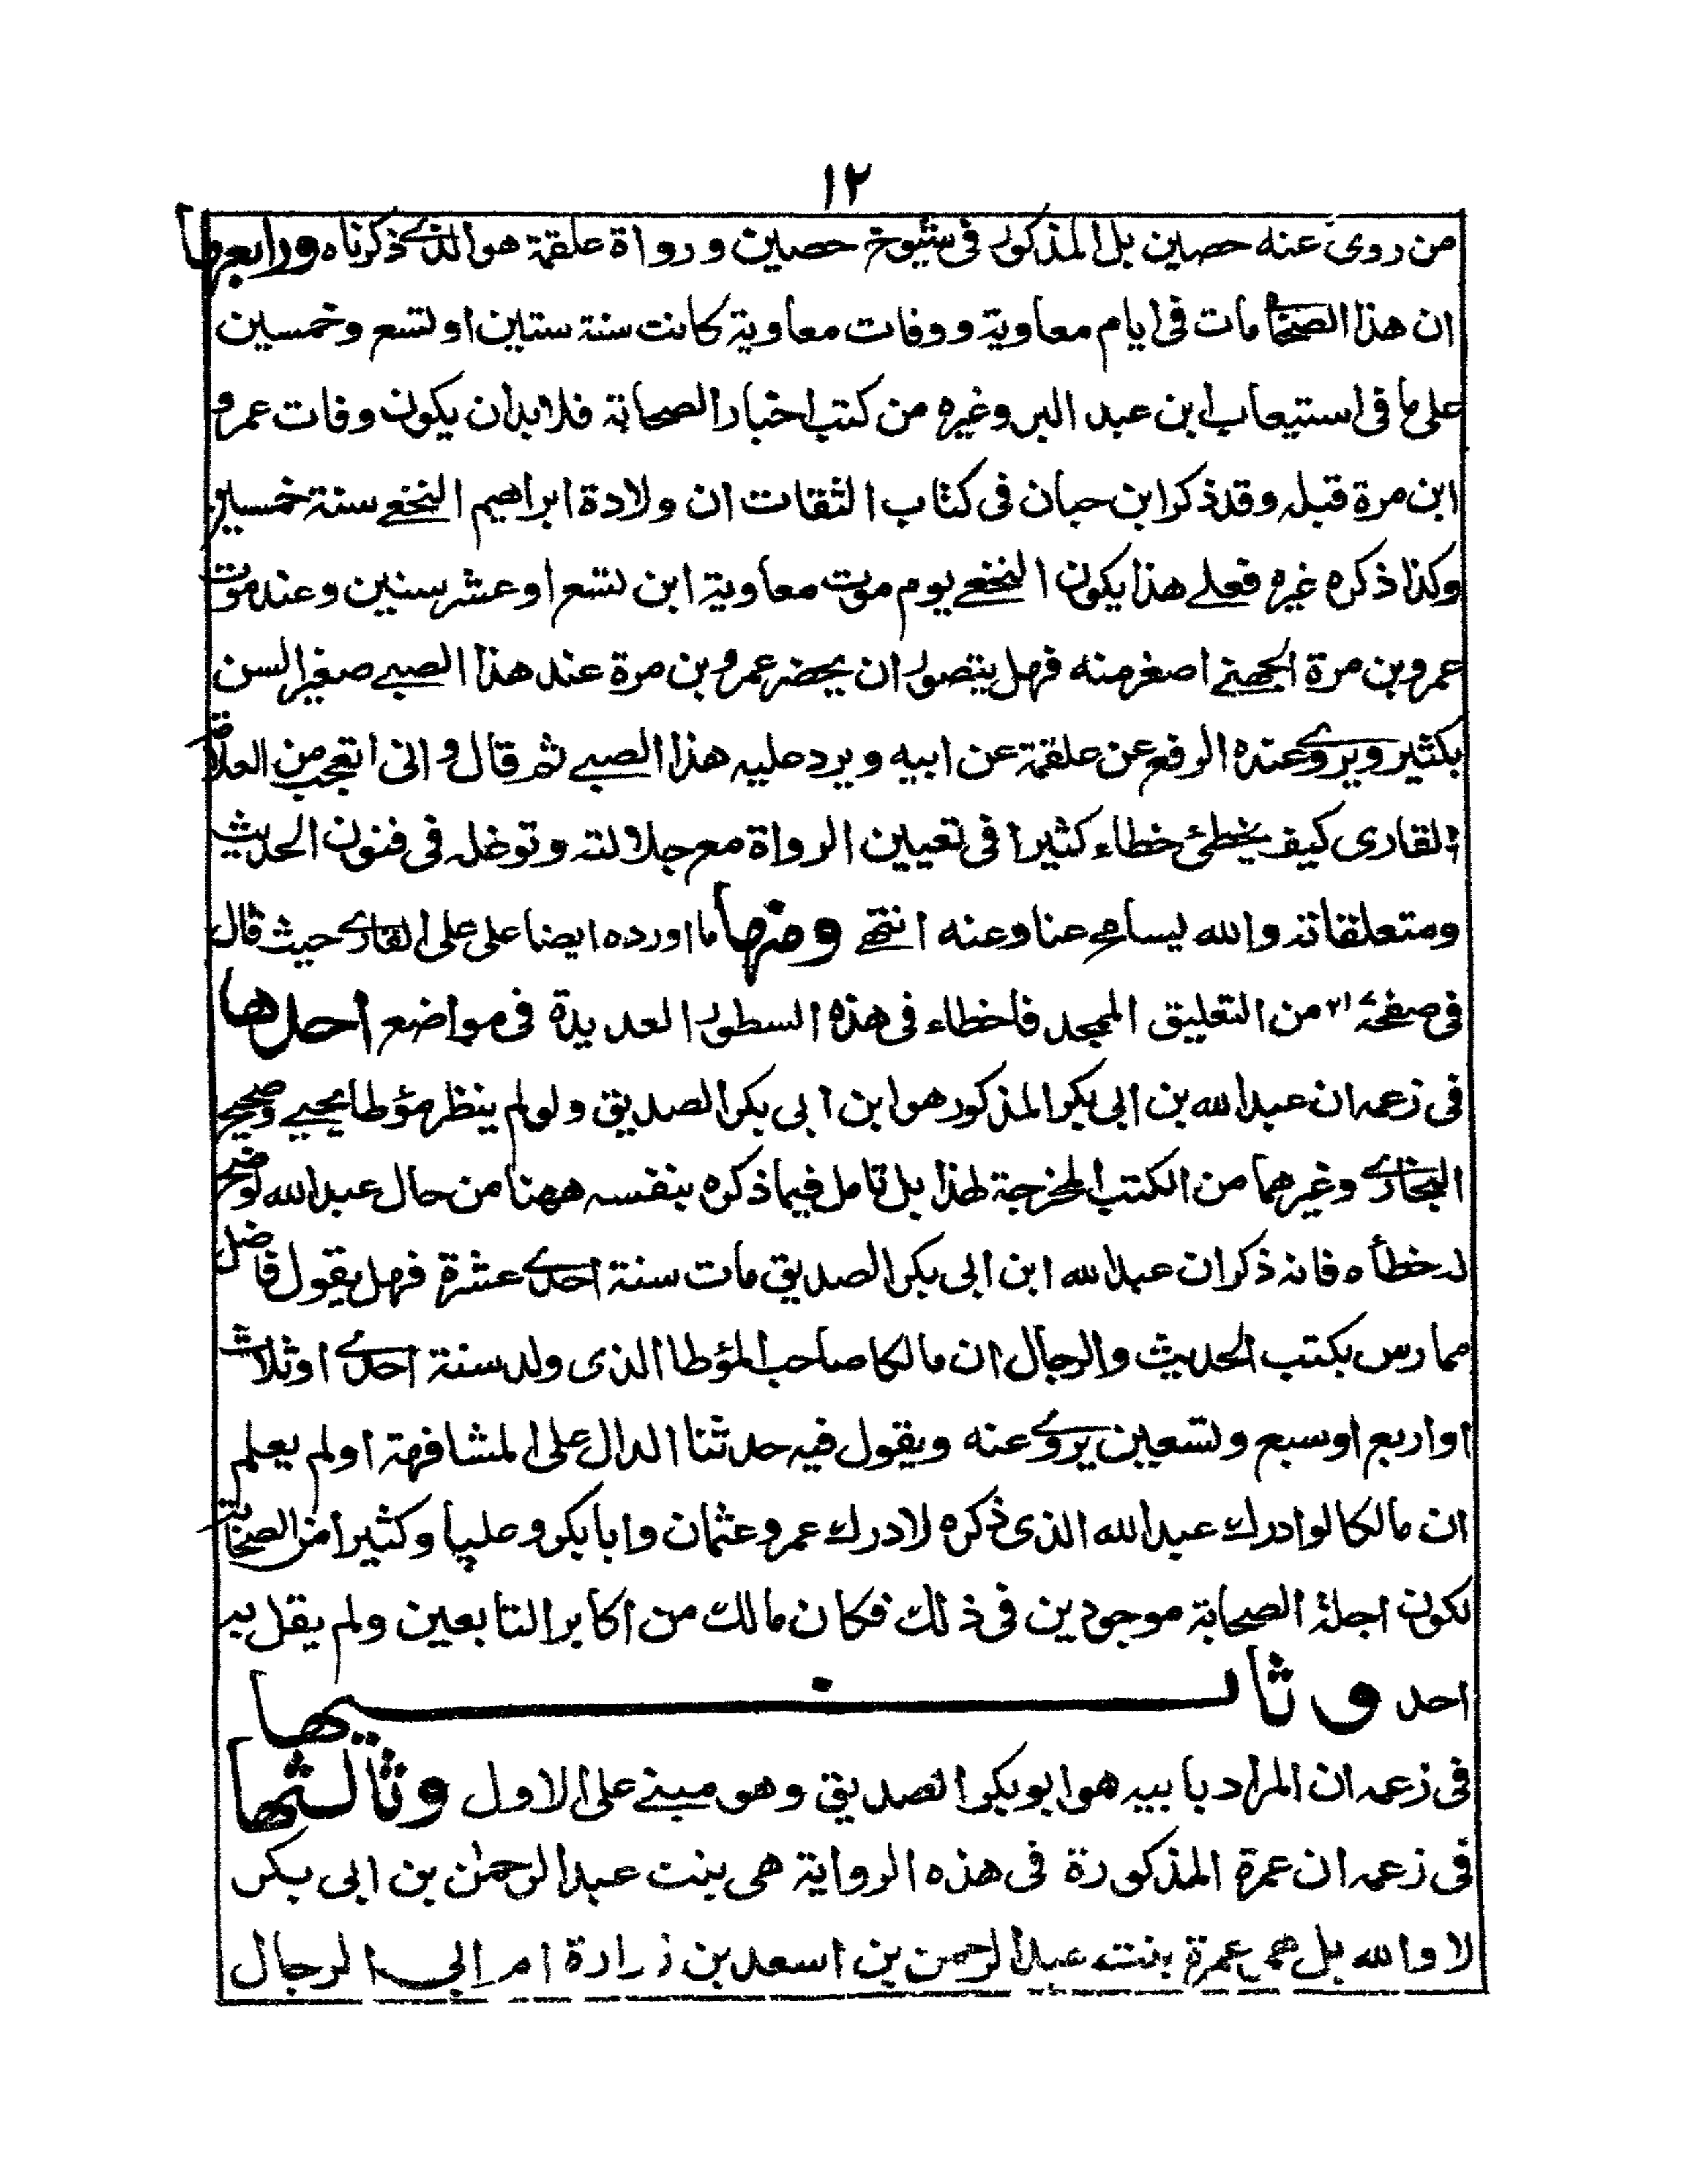 ١٢
من روى عنه حصين بل المذكور فى شيوخ حصين و رواة علقمة هو الذي ذكرناه ورابعها
ان هذا الصحابى مات فى ايام معاوية ووفات معاوية كانت سنة ستين او تسع وخمسين
على ما فى استيعاب ابن عبد البر وغيره من كتب اخبار الصحابة فلابد ان يكون وفات عمرو
ابن مرة قبله وقد ذكر ابن حبان فى كتاب الثقات ان ولادة ابراهيم النخعے سنة خمسين
وكذا ذكره غيره فعلے هذا يكون النخعے يوم موت معاوية ابن تسع او عشر سنين وعند موت
عمرو بن مرة الجهنے اصغر منه فهل يتصور ان يحضر عمرو بن مرة عند هذا الصبے صغير السن
بكثير ويروے عنده الرفع عن علقمة عن ابيه ويرد عليه هذا الصبے ثم قال و انى اتعجب من العلامة
القارى كيف يخطئ خطاء كثيرا فى تعيين الرواة مع جلالته وتوغله فى فنون الحديث
ومتعلقاته والله يسامح عنا وعنه انتهے ومنها ما اورده ايضا على على القارے حيث قال
فى صفحة ٢١ من التعليق الممجد فاخطاء فى هذه السطور العديدة فى مواضع احدها
فى زعمه ان عبد الله بن ابى بكر المذكور هو ابن ابى بكر الصديق ولو لم ينظر مؤطا يحيے وصحيح
البخارے وغيرهما من الكتب المخرجة لهذا بل تامل فيما ذكره بنفسه ههنا من حال عبد الله لوضح
له خطأه فانه ذكر ان عبد الله ابن ابى بكر الصديق مات سنة احدے عشرة فهل يقول فاضل
ممارس بكتب الحديث والرجال ان مالكا صاحب المؤطا الذى ولد سنة احدے اوثلاث
او اربع او سبع وتسعين يروے عنه ويقول فيه حدثنا الدال على المشافهة اولم يعلم
ان مالكا لو ادرك عبد الله الذى ذكره لادرك عمر وعثمان وابا بكر وعليا وكثيرا من الصحابة
لكون اجلة الصحابة موجودين فى ذلك فكان مالك من اكابر التابعين ولم يقل به
احد وثانيها
فى زعمه ان المراد بابيه هو ابو بكر الصديق وهو مبنے على الاول وثالثها
فى زعمه ان عمرة المذكورة فى هذه الرواية هى بنت عبد الرحمٰن بن ابى بكر
لا والله بل هى عمرة بنت عبد الرحمن بن اسعد بن زرارة ام ابى الرجال